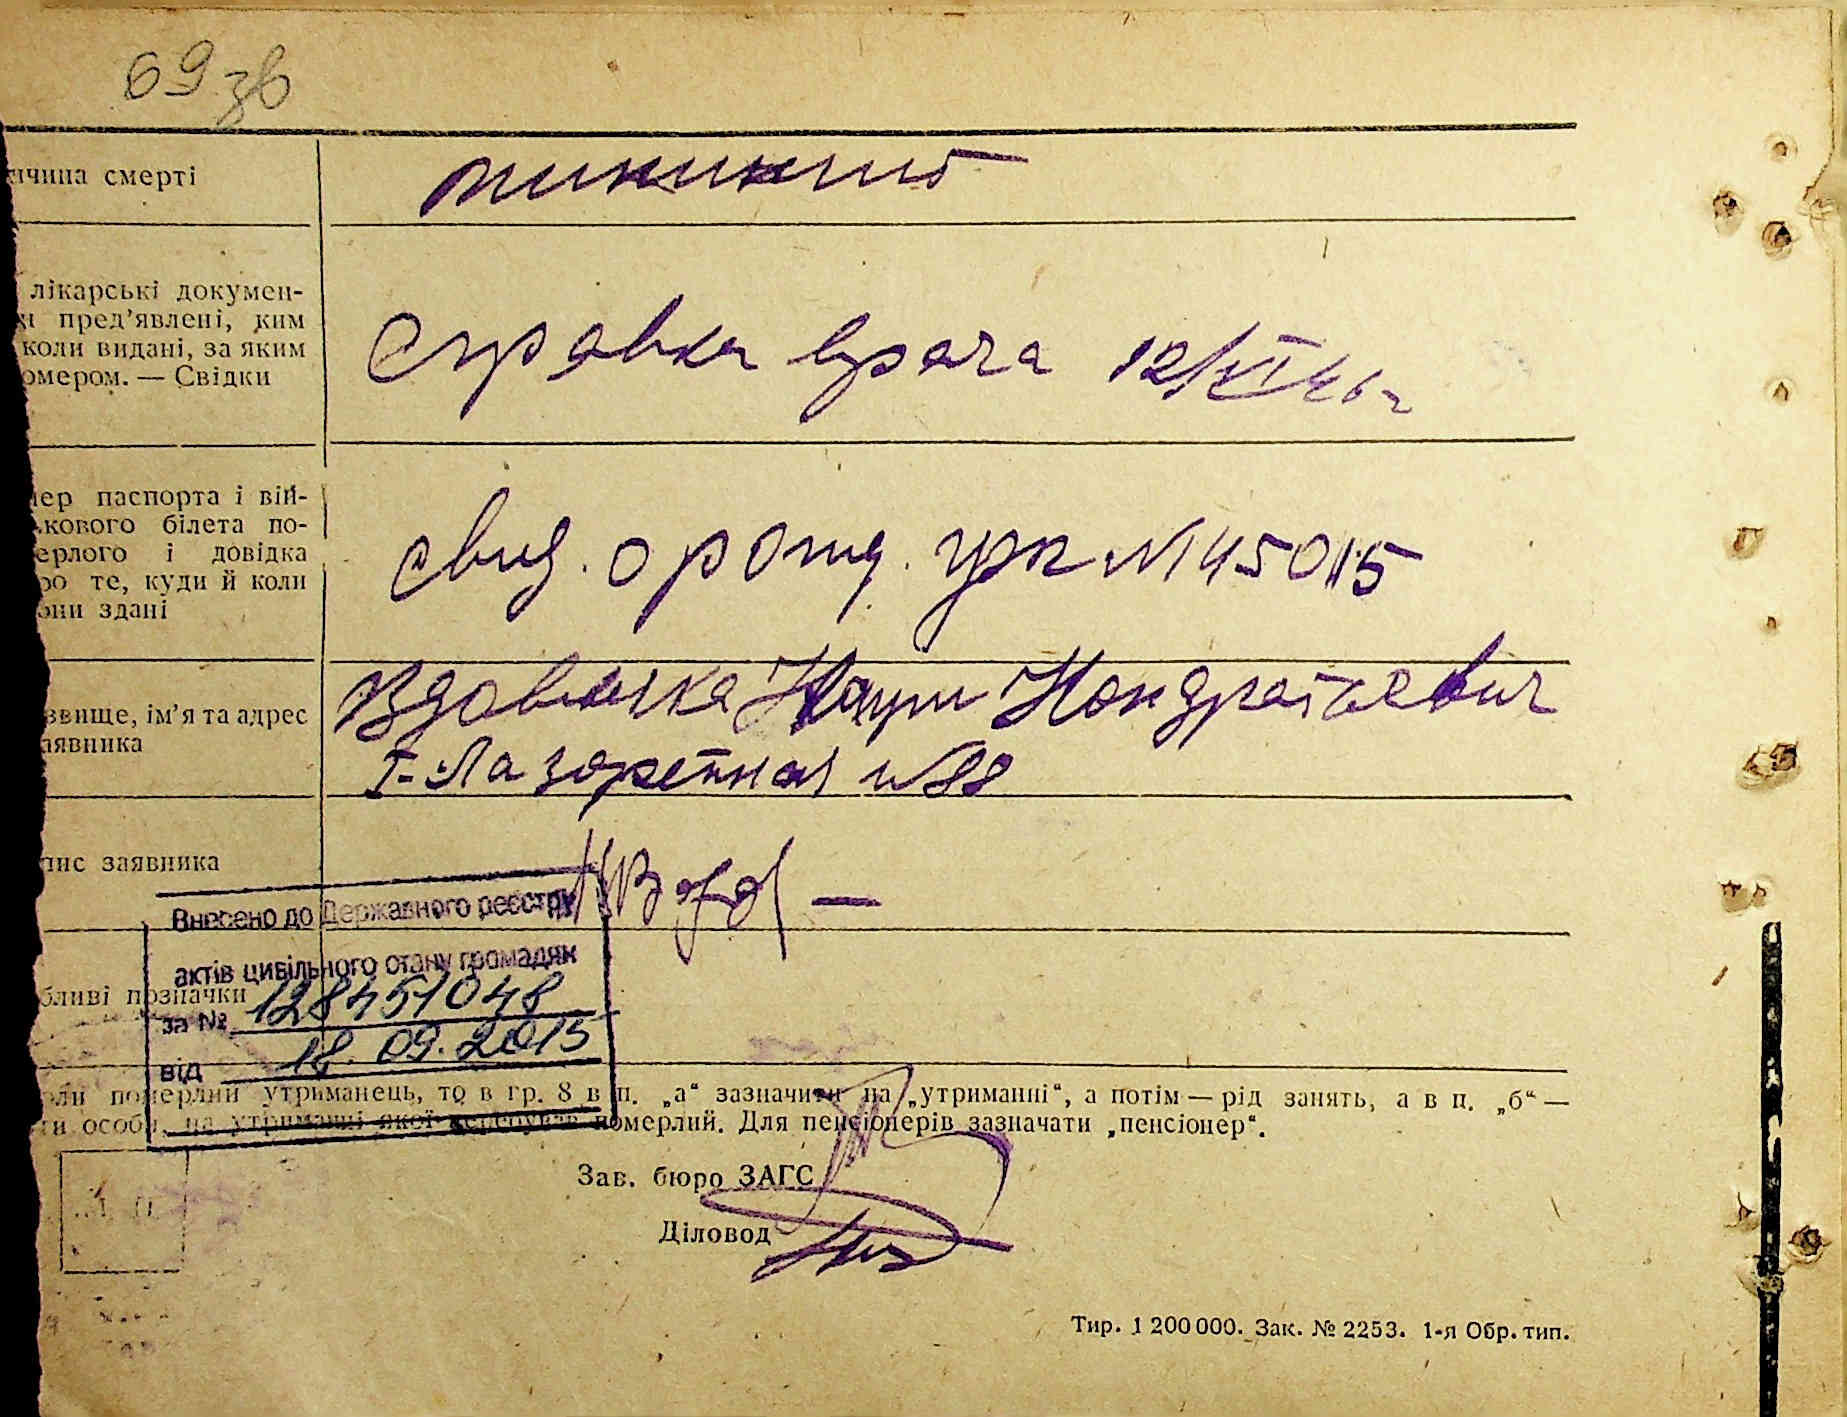 69 зв
ичина смерті
менингит
лікарські докумен-
и пред’явлені, ким
коли видані, за яким
омером. — Свідки
Справка врача 12/XI 46 г
мер паспорта і вій-
ькового білета по-
ерлого і довідка
ро те, куди й коли
они здані
свид. о рожд. №145015
звище, ім’я та адрес
аявника
Кондратьевич
I-Лазаретная №88
пис заявника
Внесено до Державного реєстру
актів цивільного стану громадян
бливі позначки
за № 128451048
від 18.09.2015
оли померлий утриманець, то в гр. 8 в п. „а“ зазначити на „утриманні“, а потім — рід занять, а в п. „б“ —
ти особу, на утриманні якої перебував померлий. Для пенсіонерів зазначати „пенсіонер“.
Зав. бюро ЗАГС
Діловод
Тир. 1 200 000. Зак. № 2253. 1-я Обр. тип.